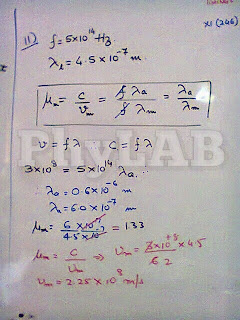 XI (246)
11) f = 5×10¹⁴ Hz
λₗ = 4.5 × 10⁻⁷ m
μₘ = c/vₘ = f λa / f λm = λa / λm
v = fλ c = fλ
PhyLAB
3×10⁸ = 5×10¹⁴ λa
λa = 0.6×10⁻⁶ m
λa = 6.0×10⁻⁷ m
μₘ = 6×10⁻⁷ / 4.5×10⁻⁷ = 1.33
μₘ = c/vₘ ⇒ vₘ = 3×10⁺⁸ × 4.5 / 6 2
vₘ = 2.25×10⁸ m/s